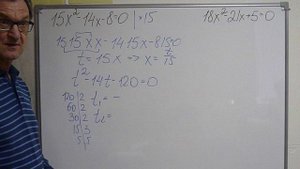 15x²-14x-8=0 | ·15
18x²-21x+5=0
15·15 x·x - 14·15x - 8·15=0
t=15x ⇒ x= t/15
t²-14t-120=0
120|2 t₁= -
60|2
30|2 t₂=
15|3
5|5